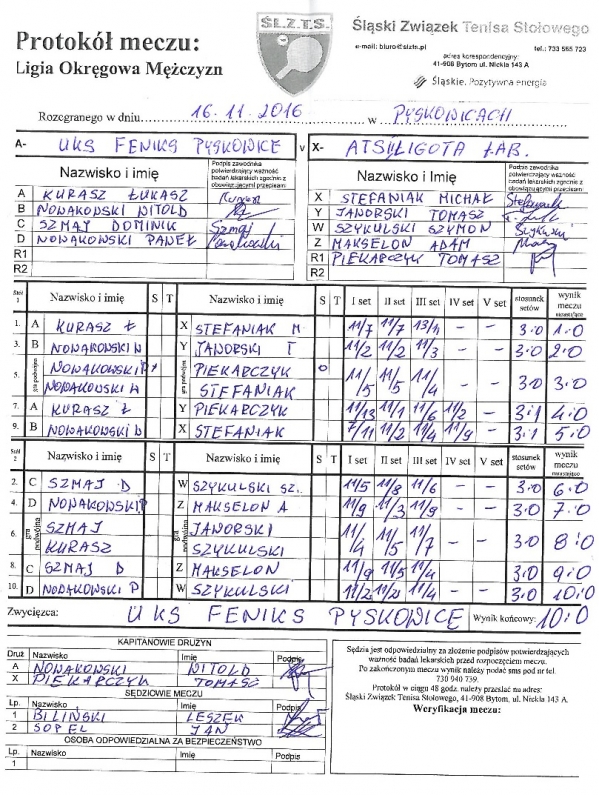 Ś.L.Z.T.S.
Śląski Związek Tenisa Stołowego
e-mail: biuro@slzts.pl tel.: 733 555 723
adres korespondencyjny:
41-908 Bytom ul. Nickla 143 A
Śląskie. Pozytywna energia
Protokół meczu:
Ligia Okręgowa Mężczyzn
Rozegranego w dniu 16.11.2016 w PYSKOWICACH
A- UKS FENIKS PYSKOWICE v X- ATS ŁIGOTA ŁAB.
Nazwisko i imię Podpis zawodnika potwierdzający ważność badań lekarskich zgodnie z obowiązującymi przepisami Nazwisko i imię Podpis zawodnika potwierdzający ważność badań lekarskich zgodnie z obowiązującymi przepisami
A KURASZ ŁUKASZ X STEFANIAK MICHAŁ
B NOWAKOWSKI WITOLD Y JAWORSKI TOMASZ
C SZMAJ DOMINIK Szmaj W SZYKULSKI SZYMON
D NOWAKOWSKI PAWEŁ Z MAKSELON ADAM
R1 R1 PIEKARCZYK TOMASZ
R2 R2
Stół 1 Nazwisko i imię S T Nazwisko i imię S T I set II set III set IV set V set stosunek setów wynik meczu narastająco
1. A KURASZ Ł X STEFANIAK M 11/7 11/7 13/11 - - 3:0 1:0
3. B NOWAKOWSKI W Y JAWORSKI T 11/2 11/2 11/3 - - 3:0 2:0
5. gra podwójna NOWAKOWSKI P gra podwójna PIEKARCZYK o 11/5 11/5 11/4 - - 3:0 3:0
NOWAKOWSKI W STEFANIAK
7. A KURASZ Ł Y PIEKARCZYK 11/13 11/1 11/6 11/2 - 3:1 4:0
9. B NOWAKOWSKI W X STEFANIAK 7/11 11/2 11/4 11/9 - 3:1 5:0
Stół 2 Nazwisko i imię S T Nazwisko i imię S T I set II set III set IV set V set stosunek setów wynik meczu narastająco
2. C SZMAJ D W SZYKULSKI SZ. 11/5 11/8 11/6 - - 3:0 6:0
4. D NOWAKOWSKI P Z MAKSELON A 11/9 11/3 11/9 - - 3:0 7:0
6. gra podwójna SZMAJ gra podwójna JAWORSKI 11/4 11/5 11/7 - - 3:0 8:0
KURASZ SZYKULSKI
8. C SZMAJ D Z MAKSELON 11/9 11/5 11/4 - - 3:0 9:0
10. D NOWAKOWSKI P W SZYKULSKI 11/2 11/4 - - 3:0 10:0
Zwycięzca: UKS FENIKS PYSKOWICE Wynik końcowy: 10:0
KAPITANOWIE DRUŻYN
Druż Nazwisko Imię Podpis
A NOWAKOWSKI WITOLD
X PIEKARCZYK TOMASZ
SĘDZIOWIE MECZU
Lp. Nazwisko Imię Podpis
1 BILIŃSKI LESZEK
2 SOPEL JAN
OSOBA ODPOWIEDZIALNA ZA BEZPIECZEŃSTWO
Lp. Nazwisko Imię Podpis
1
Sędzia jest odpowiedzialny za złożenie podpisów potwierdzających
ważność badań lekarskich przed rozpoczęciem meczu.
Po zakończonym meczu wynik należy podać sms pod nr tel.
730 940 739.
Protokół w ciągu 48 godz. należy przesłać na adres:
Śląski Związek Tenisa Stołowego, 41-908 Bytom, ul. Nickla 143 A.
Weryfikacja meczu: